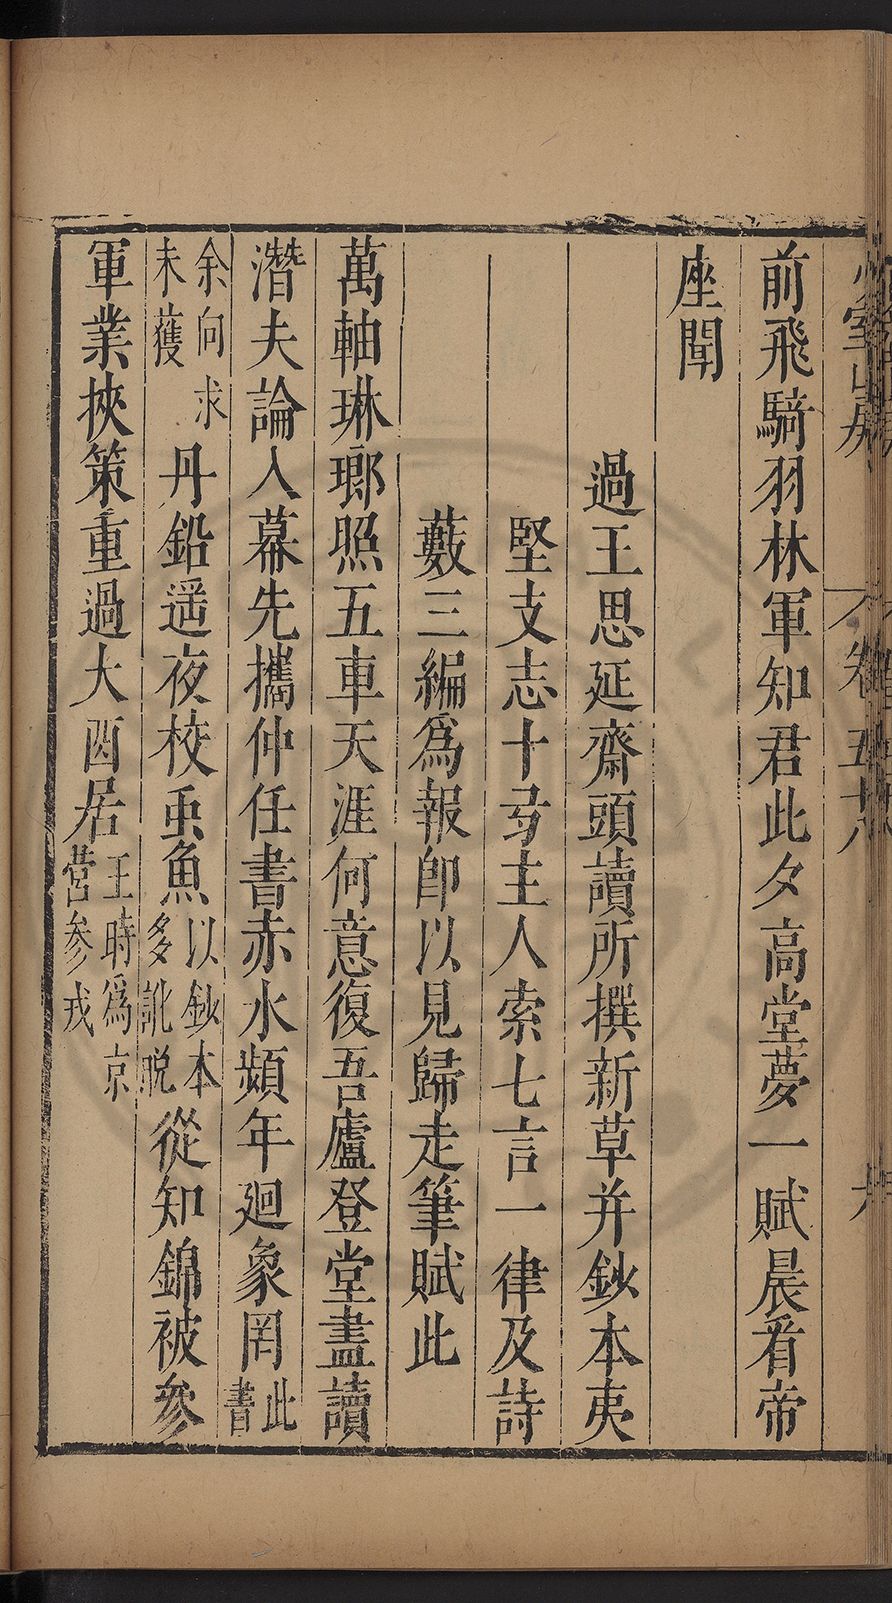 前飛騎羽林軍知君此夕高堂夢一賦晨看帝
座聞
過王思延齋頭讀所撰新草并鈔本夷
堅支志十𢎥主人索七言一律及詩
藪三編爲報卽以見歸走筆賦此
萬軸琳瑯照五車天涯何意復吾廬登堂盡讀
潛夫論入幕先攜仲任書赤水頻年廻象罔此書
余向求未獲丹鉛遥夜校䖝魚以鈔本多訛脫從知錦被參
軍業挾策重過大酉居王時爲京營參戎
室山房
卷五十八